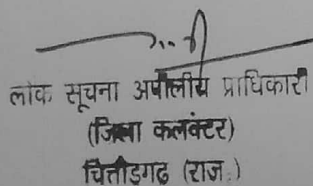 लोक सूचना अपीलीय प्राधिकारी
(जिला कलक्टर)
चित्तौडगढ (राज.)